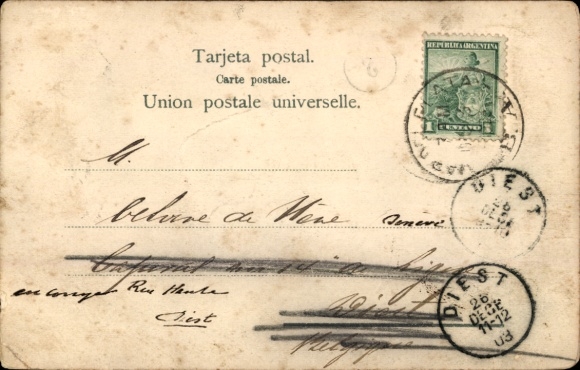 Tarjeta postal.
Carte postale.
Union postale universelle.
2
REPUBLICA ARGENTINA
1 CENTAVO 1
M.
de
Caporal au 14e de Ligne
en congé Rue Haute
Diest
Diest
Belgique
DIEST
26
DECE
DIEST
26
DECE
11-12
03